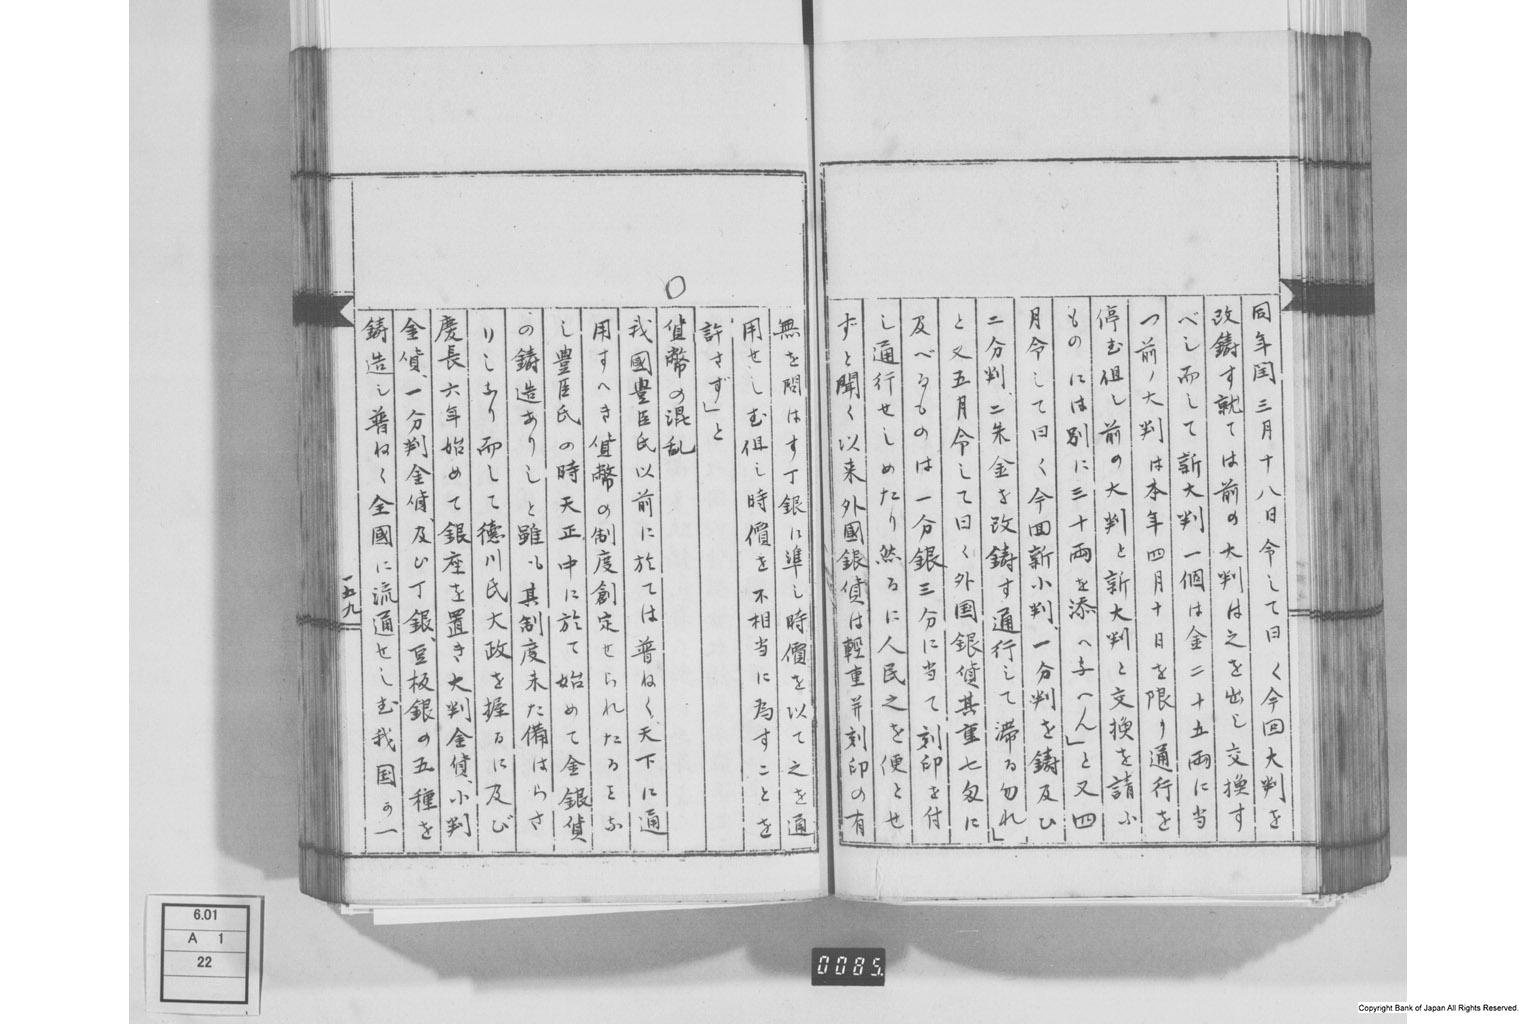 同年閏三月十八日令して曰く今回大判を
改鋳す就ては前の大判は之を出し交換す
べし而して新大判一個は金二十五両に当
つ前ノ大判は本年四月十日を限り通行を
停む但し前の大判と新大判と交換を請ふ
ものには別に三十両を添へ与へん」と又四
月令して曰く今回新小判、一分判を鋳及ひ
二分判、二朱金を改鋳す通行して滞る勿れ」
と又五月令して曰く外国銀貨其重七匁に
及べるものは一分銀三分に当て刻印を付
し通行せしめたり然るに人民之を便とせ
ずと聞く以来外國銀貨は軽重并刻印の有
無を問はす丁銀に準し時價を以て之を通
用せしむ但し時價を不相当に為すことを
許さず」と
○
貨幣の混乱
我國豊臣氏以前に於ては普ねく天下に通
用すへき貨幣の制度創定せられたるをな
し豊臣氏の時天正中に於て始めて金銀貨
の鋳造ありしと雖も其制度未た備はらさ
りしなり而して徳川氏大政を握るに及び
慶長六年始めて銀座を置き大判金貨、小判
金貨、一分判金貨、及ひ丁銀、豆板銀の五種を
鋳造し普ねく全國に流通せしむ我国の一
一五九
6.01
A 1
22
0085
Copyright Bank of Japan All Rights Reserved.